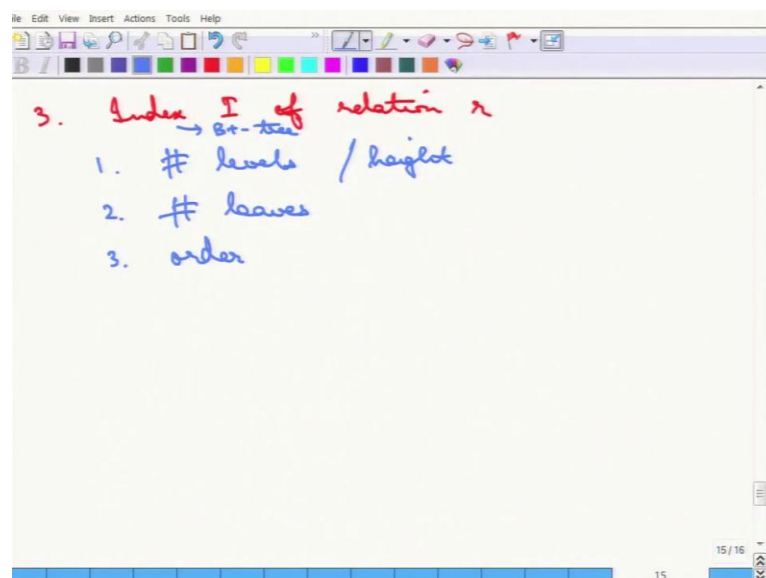 ile Edit View Insert Actions Tools Help
3. Index I of relation r
→ B+-tree
1. # levels / height
2. # leaves
3. order
15 / 16
15